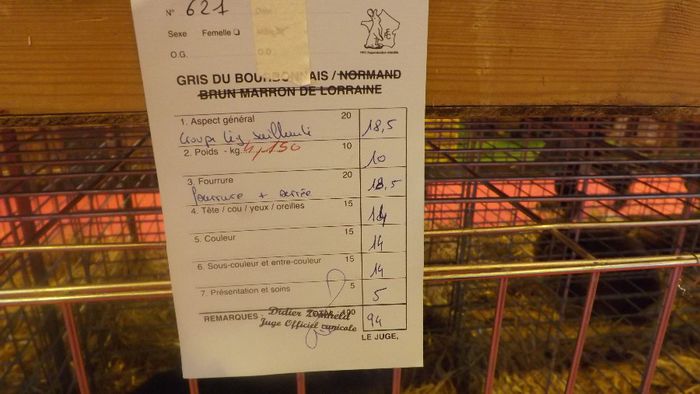 N° 621
Sexe Femelle
O.G. O.D.
GRIS DU BOURBONNAIS / NORMAND
BRUN MARRON DE LORRAINE
1. Aspect général 20 18,5
croupe lég saillante
2. Poids - kg. 4,150 10 10
3. Fourrure 20 18,5
fourrure +
4. Tête / cou / yeux / oreilles 15 14
5. Couleur 15 14
6. Sous-couleur et entre-couleur 15 14
7. Présentation et soins 5 5
REMARQUES : Didier 100 94
Juge Officiel cunicole
LE JUGE,